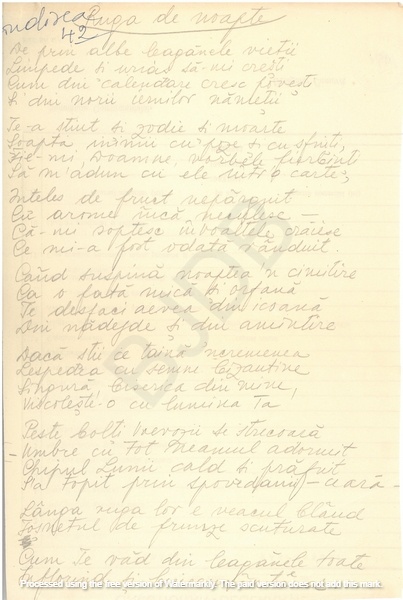 Gândirea
42
Ruga de noapte
De prin albe leagănele vieții
Limpede și uriaș să-mi crești
Cum din calendare cresc povești
Și din norii iernilor nămeții
Te-a știut și zodie și moarte
Șoapta inimii cu și cu sfinți,
Fie-mi, Doamne, vorbele fierbinți
Să m'adun cu ele într'o carte,
Înțeles de fruct nepârguit
Cu arome încă neculese —
Că-mi șoptesc învoaltele crăiese
Ce mi-a fost odată rânduit.
Când suspină noaptea 'n cimitire
Ca o fată mică și orfană
Te desfaci aevea din icoană
Din nădejde și din amintire
Dacă știi ce taină ncremenea
Lespedea cu semne bizantine
Singură, biserica din mine,
Viscolești-o cu lumina Ta
Peste bolți Voevozii se strecoară
- Umbre cu tot neamul adormit
Chipul Lunii cald și prăfuit
S'a topit prin spovedanii — ceară -
Lângă ruga lor e veacul blând
Foșnetul de frunze scuturate
Cum Te văd din leagănele toate
BJDD
Processed using the free version of Watermarkly. The paid version does not add this mark.